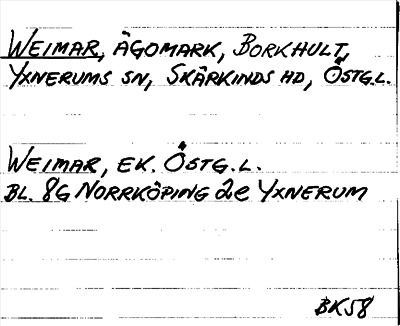 WEIMAR, ÄGOMARK, BORKHULT,
YXNERUMS SN, SKÄRKINDS HD, ÖSTG.L.
WEIMAR, EK. ÖSTG.L.
BL. 8G NORRKÖPING 2e YXNERUM
BK58